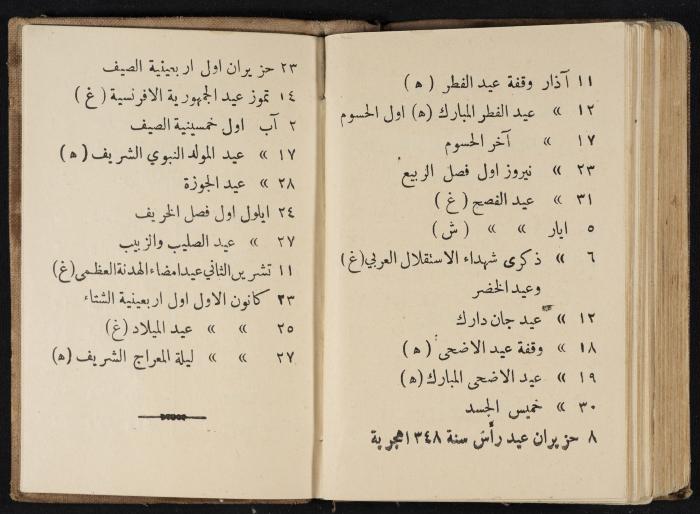 ١١ آذار وقفة عيد الفطر ( ه )
١٢ » عيد الفطر المبارك (ه) اول الحسوم
١٧ » آخر الحسوم
٢٣ » نيروز اول فصل الربيع
٣١ » عيد الفصح ( غ )
٥ ايار » » ( ش )
٦ » ذكرى شهداء الاستقلال العربي (غ)
وعيد الخضر
١٢ » عيد جان دارك
١٨ » وقفة عيد الاضحى ( ه )
١٩ » عيد الاضحى المبارك (ه)
٣٠ » خميس الجسد
٨ حزيران عيد رأس سنة ١٣٤٨ هجرية
٢٣ حزيران اول اربعينية الصيف
١٤ تموز عيد الجمهورية الافرنسية ( غ )
٢ آب اول خمسينية الصيف
١٧ » عيد المولد النبوي الشريف ( ه )
٢٨ » عيد الجوزة
٢٤ ايلول اول فصل الخريف
٢٧ » عيد الصليب والزبيب
١١ تشرين الثاني عيد امضاء الهدنة العظمى (غ)
٢٣ كانون الاول اول اربعينية الشتاء
٢٥ » » عيد الميلاد (غ)
٢٧ » » ليلة المعراج الشريف ( ه )